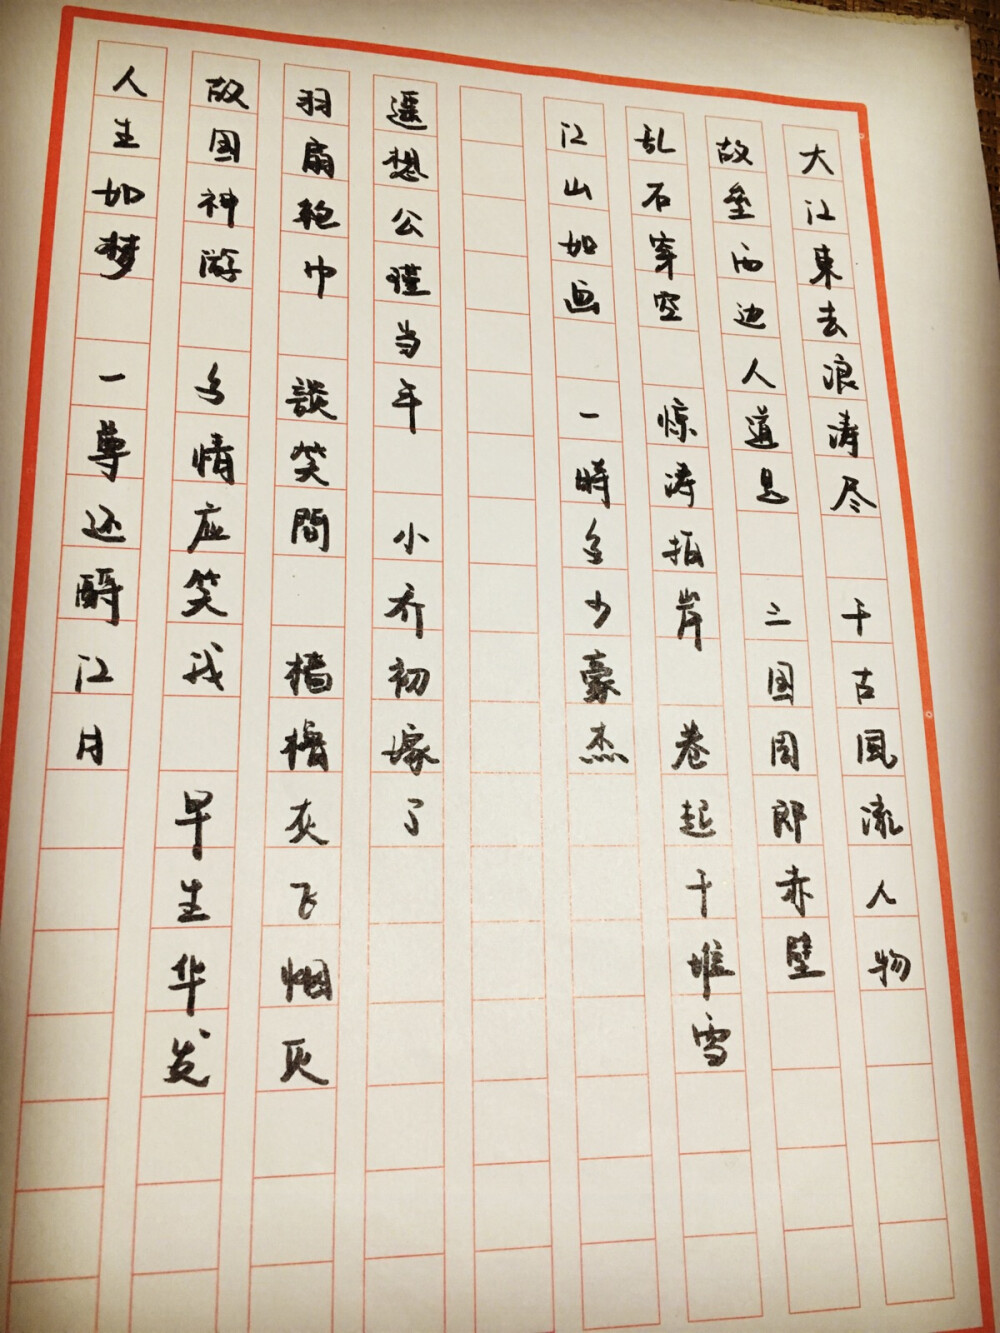 大江東去浪涛尽 千古风流人物
故垒西边人道是 三国周郎赤壁
乱石穿空 惊涛拍岸 卷起千堆雪
江山如画 一時多少豪杰
遥想公瑾当年 小乔初嫁了
羽扇纶巾 談笑間 樯橹灰飞烟灭
故国神游 多情应笑我 早生华发
人生如梦 一尊还酹江月